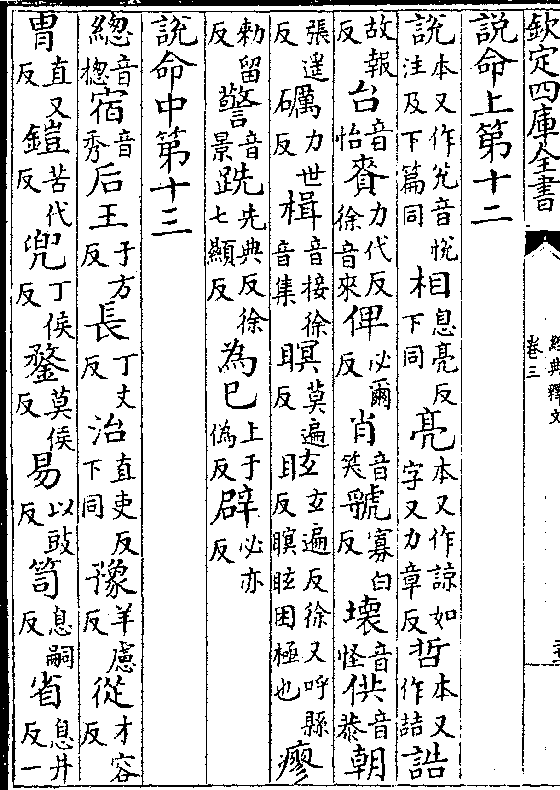 欽定四庫全書
經典釋文
卷三
說命上第十二
說本又作兊音悅注及下篇同相息亮反下同亮本又作諒如字又力章反哲本又作喆誥
故報反台音怡賚力代反徐音來俾必爾反肖音笑虢寡白反壞音怪供音恭朝
張遥反礪力世反楫音接徐音集瞑莫遍反眩玄遍反徐又呼縣反瞑眩困極也瘳
勑留反警音景跣先典反徐七顯反為巳上于偽反辟必亦反
說命中第十三
緫音揔宿音秀后王于方反長丁丈反治直吏反下同豫羊慮反從才容反
胄直又反鎧苦代反兜丁侯反鍪莫侯反易以豉反笥息嗣反省息井反一